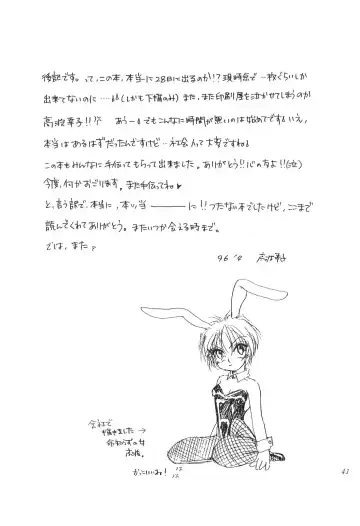 後記です。って、この本、本当に28日に出るのか!?現時点で一枚ぐらいしか
出来てないのに……(しかも下描のみ)また、また印刷屋を泣かせてしまうのか
高波幸子!!? あうーでもこんなに時間が無いのは始めてです。いえ、
本当はあるはずだったんですけど…社会人て大変ですね。
この本もみんなに手伝ってもらって出来ました。ありがとう!!心の友よ!!
今度、何かおごります。また手伝ってね♥
と、言う訳で、本当に、本っ当————に!!つたない本でしたけど、ここまで
読んでくれてありがとう。またいつか会える時まで。
では、また。
96
会社で
描きました →
命知らずの女
高波。
43